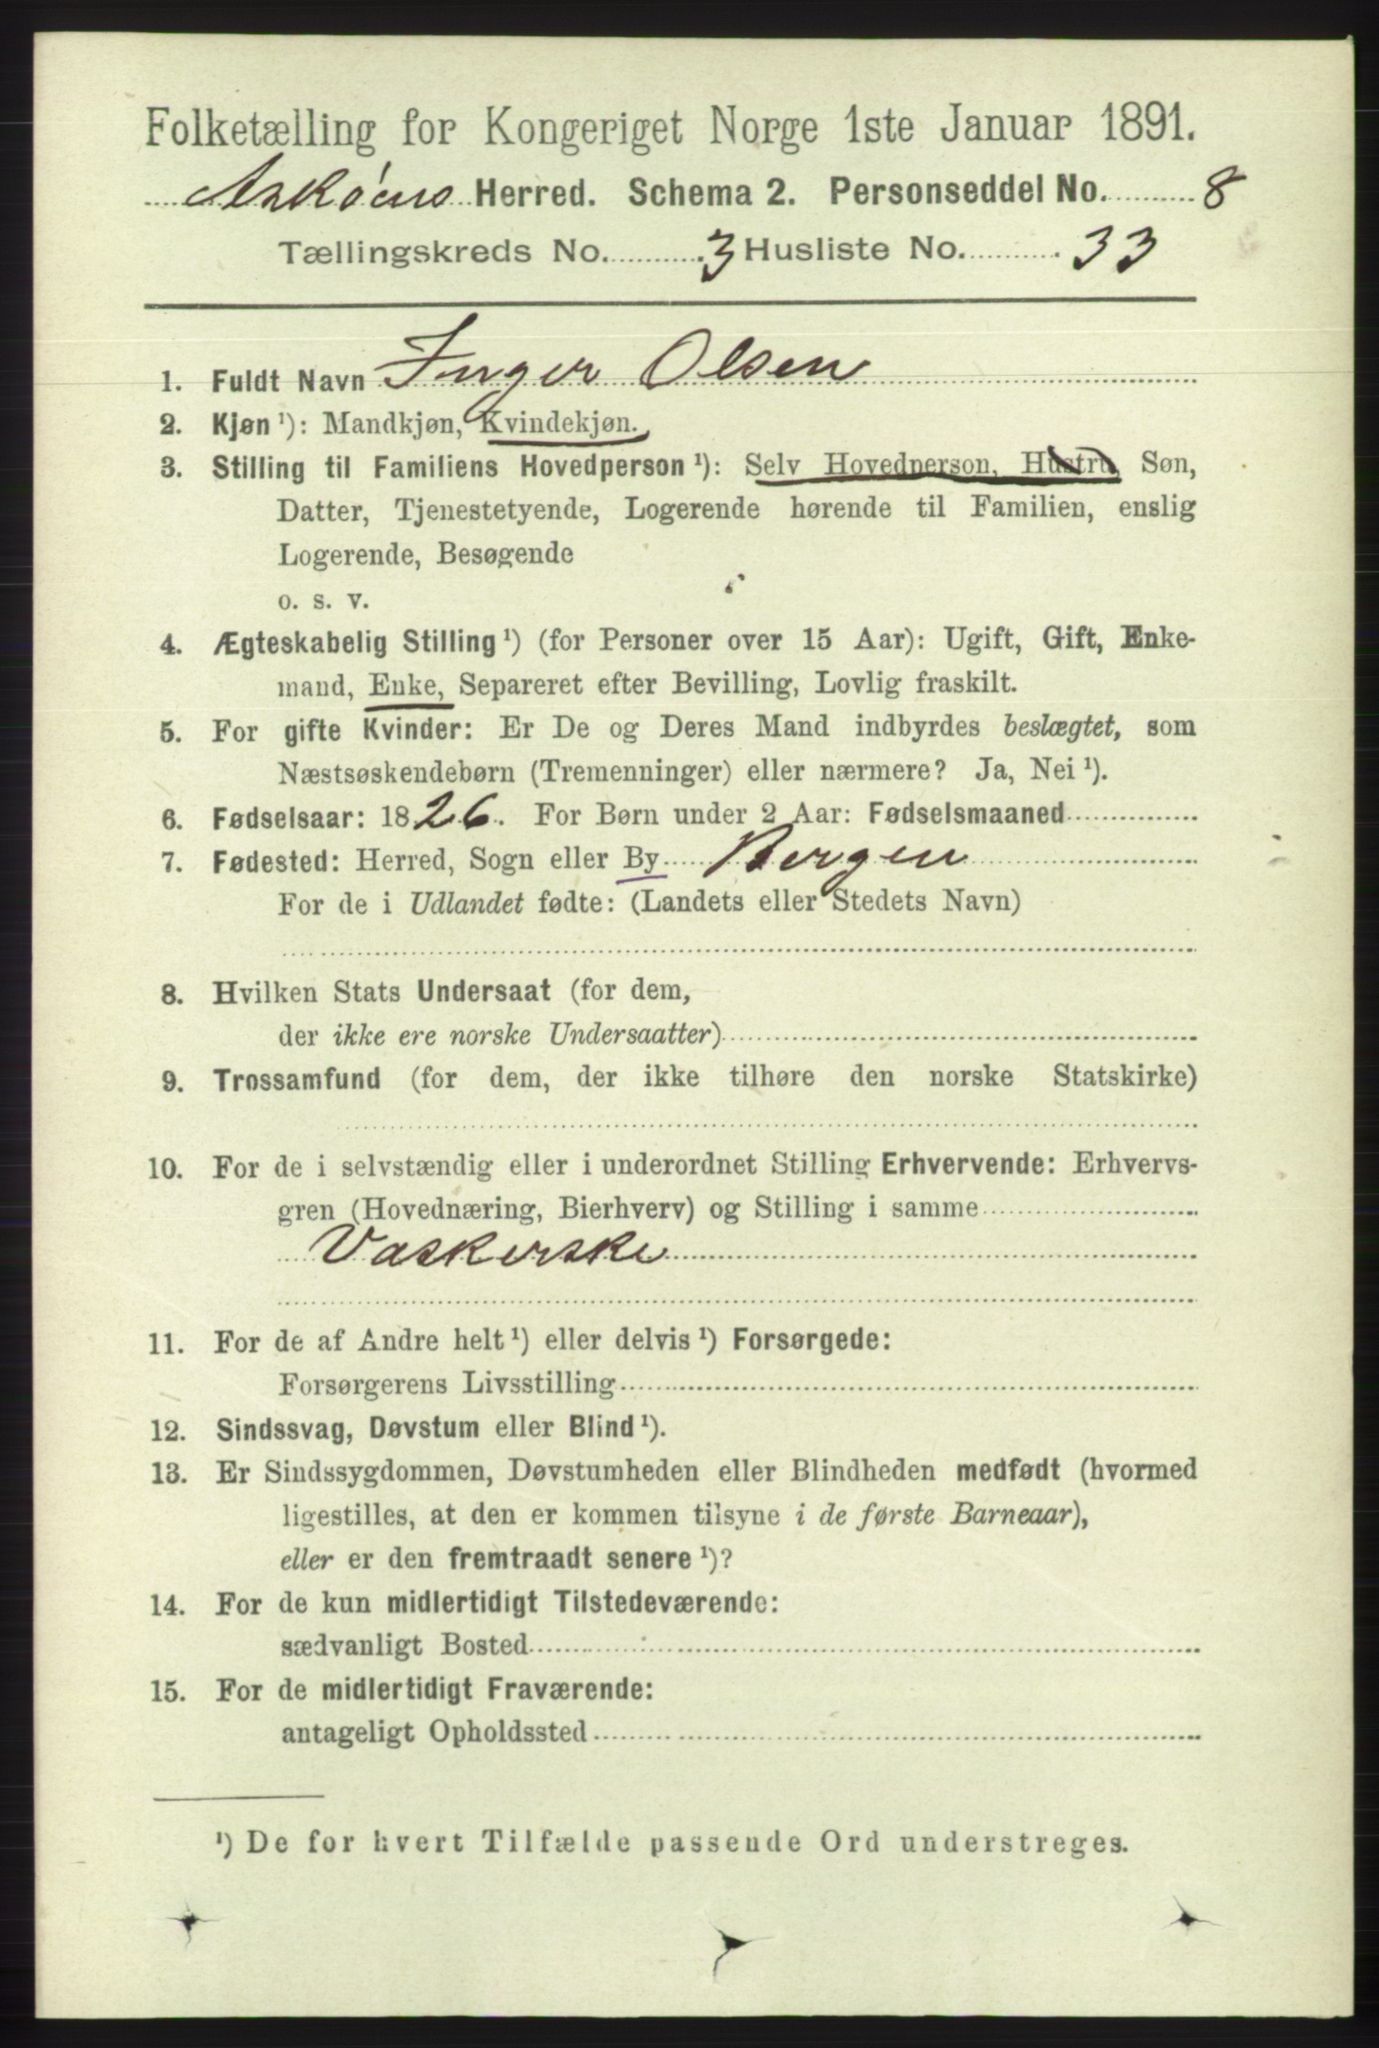 Folketælling for Kongeriget Norge 1ste Januar 1891.
Askøens Herred. Schema 2. Personseddel No. 8
Tællingskreds No. 3 Husliste No. 33
1. Fuldt Navn Inger Olsen
2. Kjøn¹): Mandkjøn, Kvindekjøn.
3. Stilling til Familiens Hovedperson¹): Selv Hovedperson, Hustru, Søn,
Datter, Tjenestetyende, Logerende hørende til Familien, enslig
Logerende, Besøgende
o. s. v.
4. Ægteskabelig Stilling¹) (for Personer over 15 Aar): Ugift, Gift, Enke-
mand, Enke, Separeret efter Bevilling, Lovlig fraskilt.
5. For gifte Kvinder: Er De og Deres Mand indbyrdes beslægtet, som
Næstsøskendebørn (Tremenninger) eller nærmere? Ja, Nei¹).
6. Fødselsaar: 1826. For Børn under 2 Aar: Fødselsmaaned
7. Fødested: Herred, Sogn eller By Bergen
For de i Udlandet fødte: (Landets eller Stedets Navn)
8. Hvilken Stats Undersaat (for dem,
der ikke ere norske Undersaatter)
9. Trossamfund (for dem, der ikke tilhøre den norske Statskirke)
10. For de i selvstændig eller i underordnet Stilling Erhvervende: Erhvervs-
gren (Hovednæring, Bierhverv) og Stilling i samme
Vaskerske
11. For de af Andre helt¹) eller delvis¹) Forsørgede:
Forsørgerens Livsstilling
12. Sindssvag, Døvstum eller Blind¹).
13. Er Sindssygdommen, Døvstumheden eller Blindheden medfødt (hvormed
ligestilles, at den er kommen tilsyne i de første Barneaar),
eller er den fremtraadt senere¹)?
14. For de kun midlertidigt Tilstedeværende:
sædvanligt Bosted
15. For de midlertidigt Fraværende:
antageligt Opholdssted
¹) De for hvert Tilfælde passende Ord understreges.